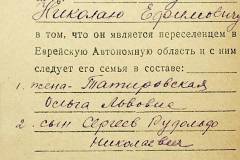 Николаю Ефимович
в том, что он является переселенцем в
Еврейскую Автономную область и с ним
следует его семья в составе:
1. жена-Татировская
Ольга Львовна
2. сын Сергеев Рудольф
Николаевич